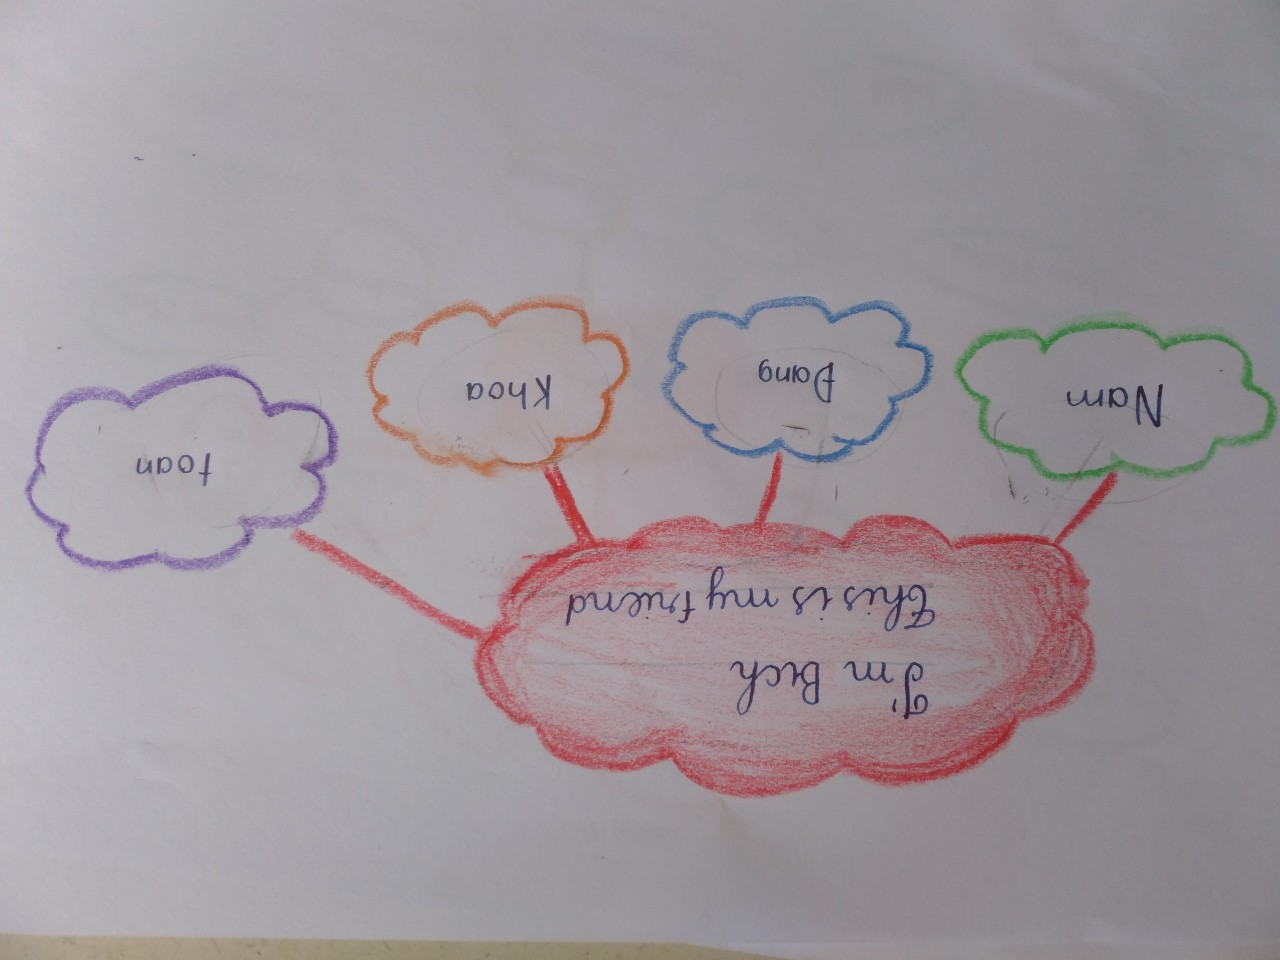 I'm Bich
This is my friend
Nam
Đang
Khoa
toan